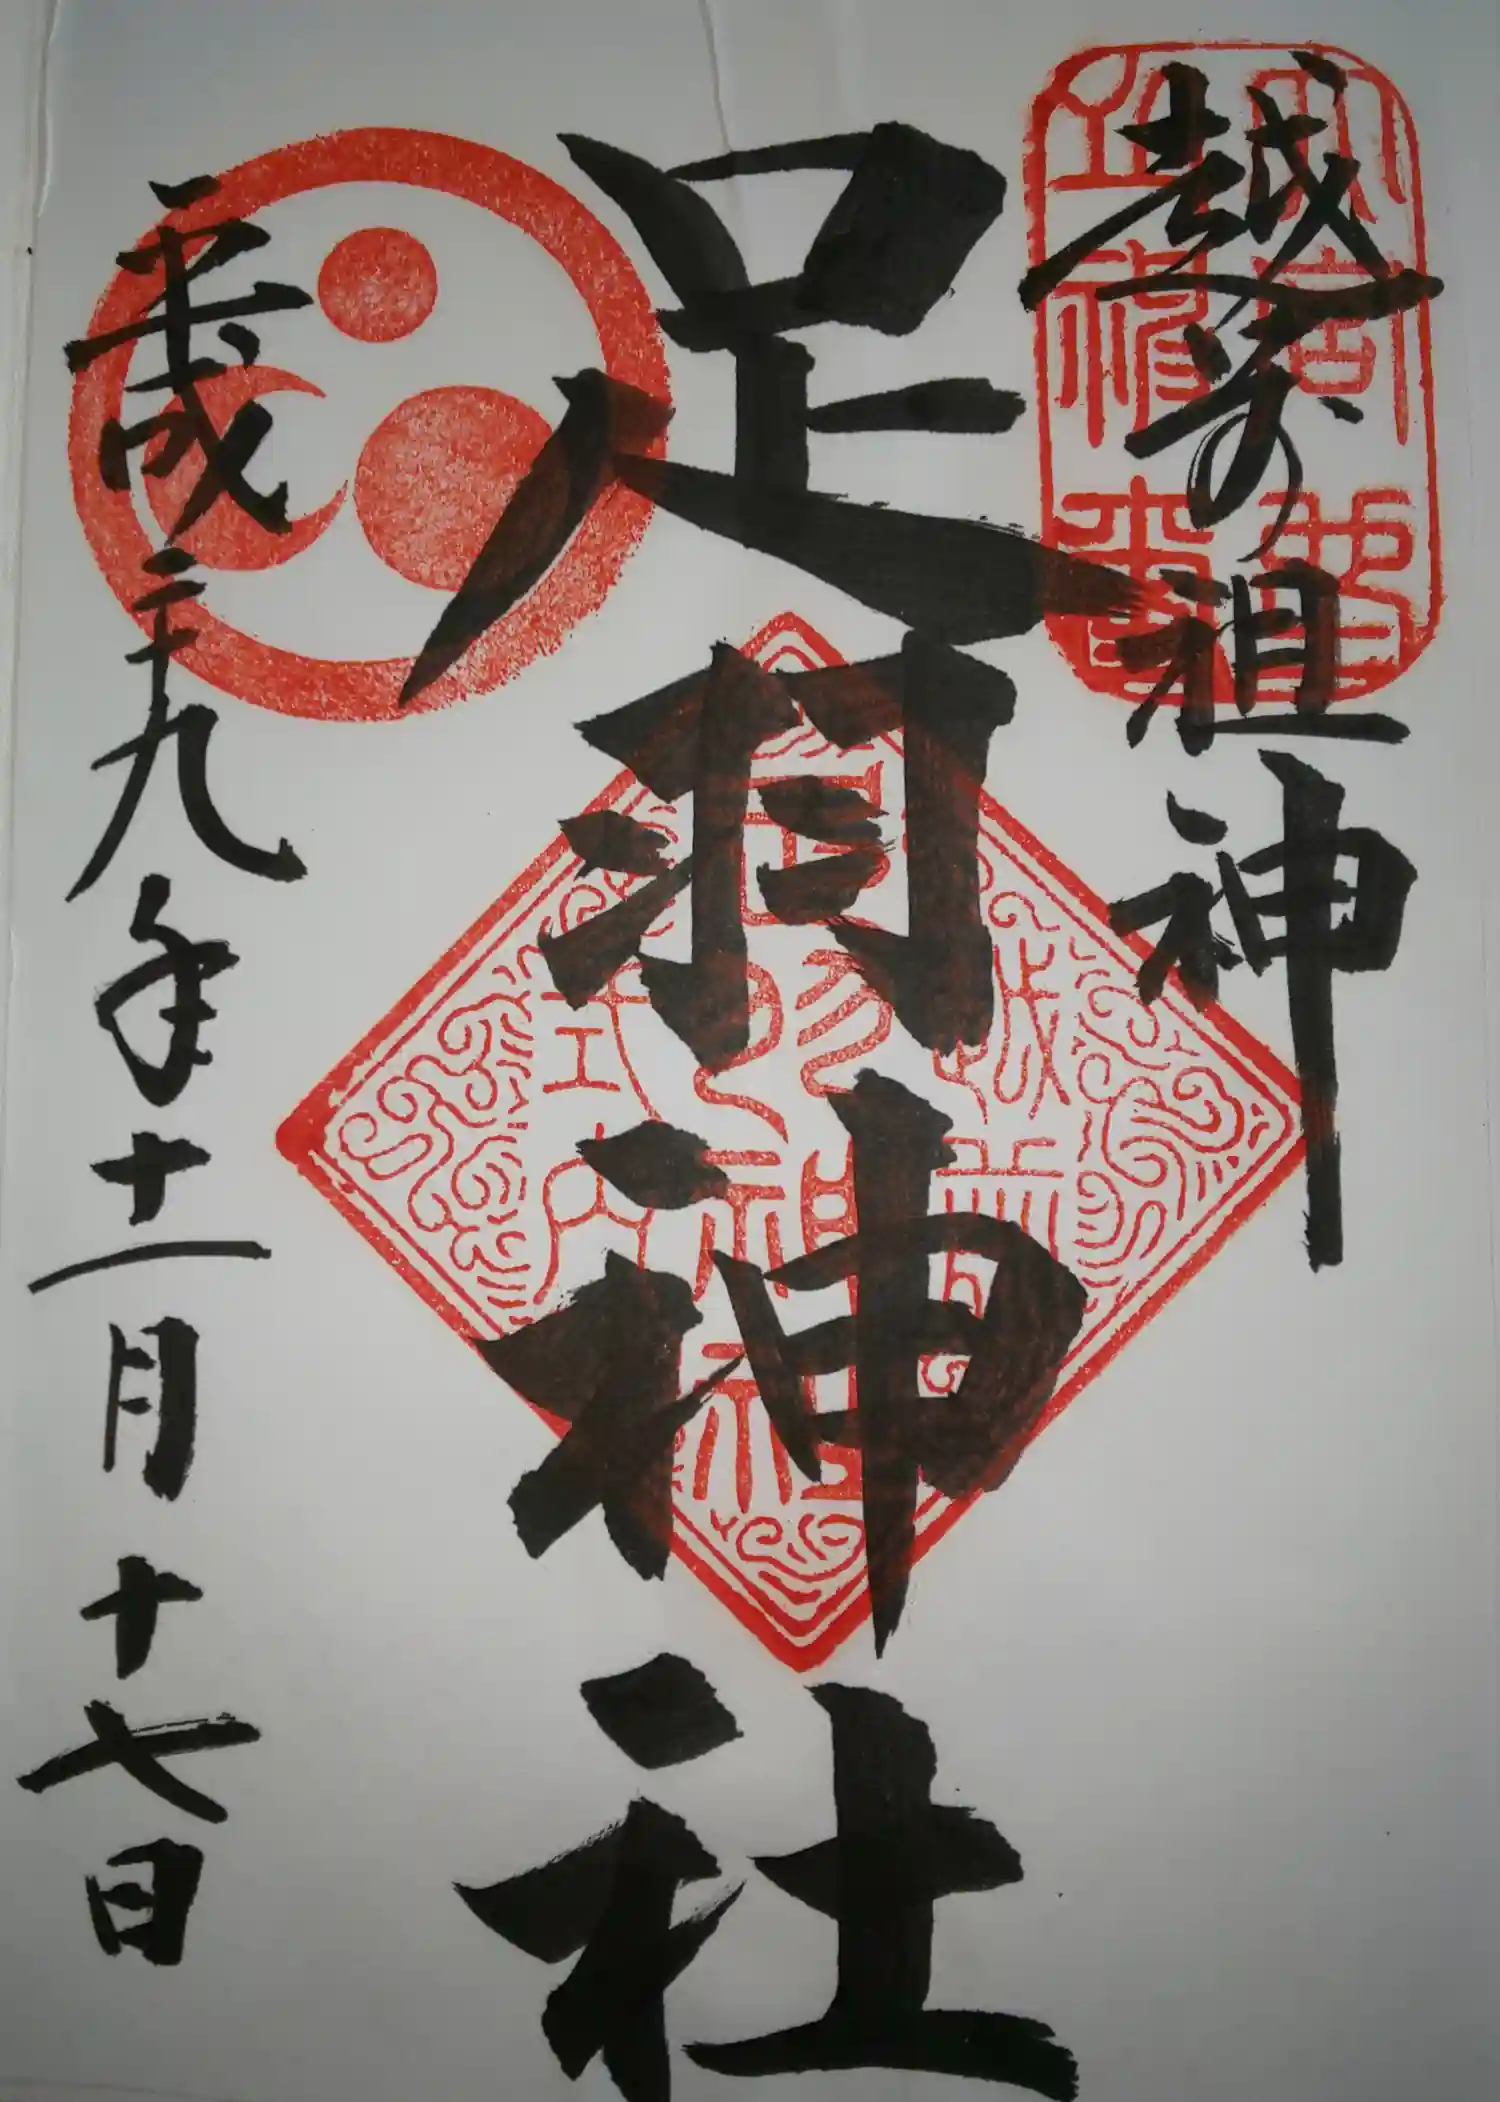 越前の祖神
足羽神社
平成二十九年十一月十七日